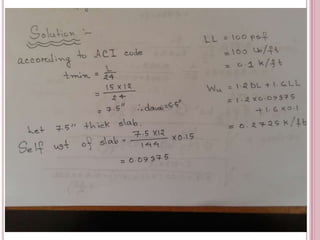 Solution :-
according to ACI code
tmin = L/24
= 15×12/24
= 7.5"
Let 7.5" thick slab.
Self wt of slab = 7.5×12/144 × 0.15
= 0.09375
LL = 100 psf
= 100 lb/ft
= 0.1 k/ft
Wu = 1.2DL + 1.6LL
= 1.2×0.09375
+ 1.6×0.1
= 0.2725 k/ft